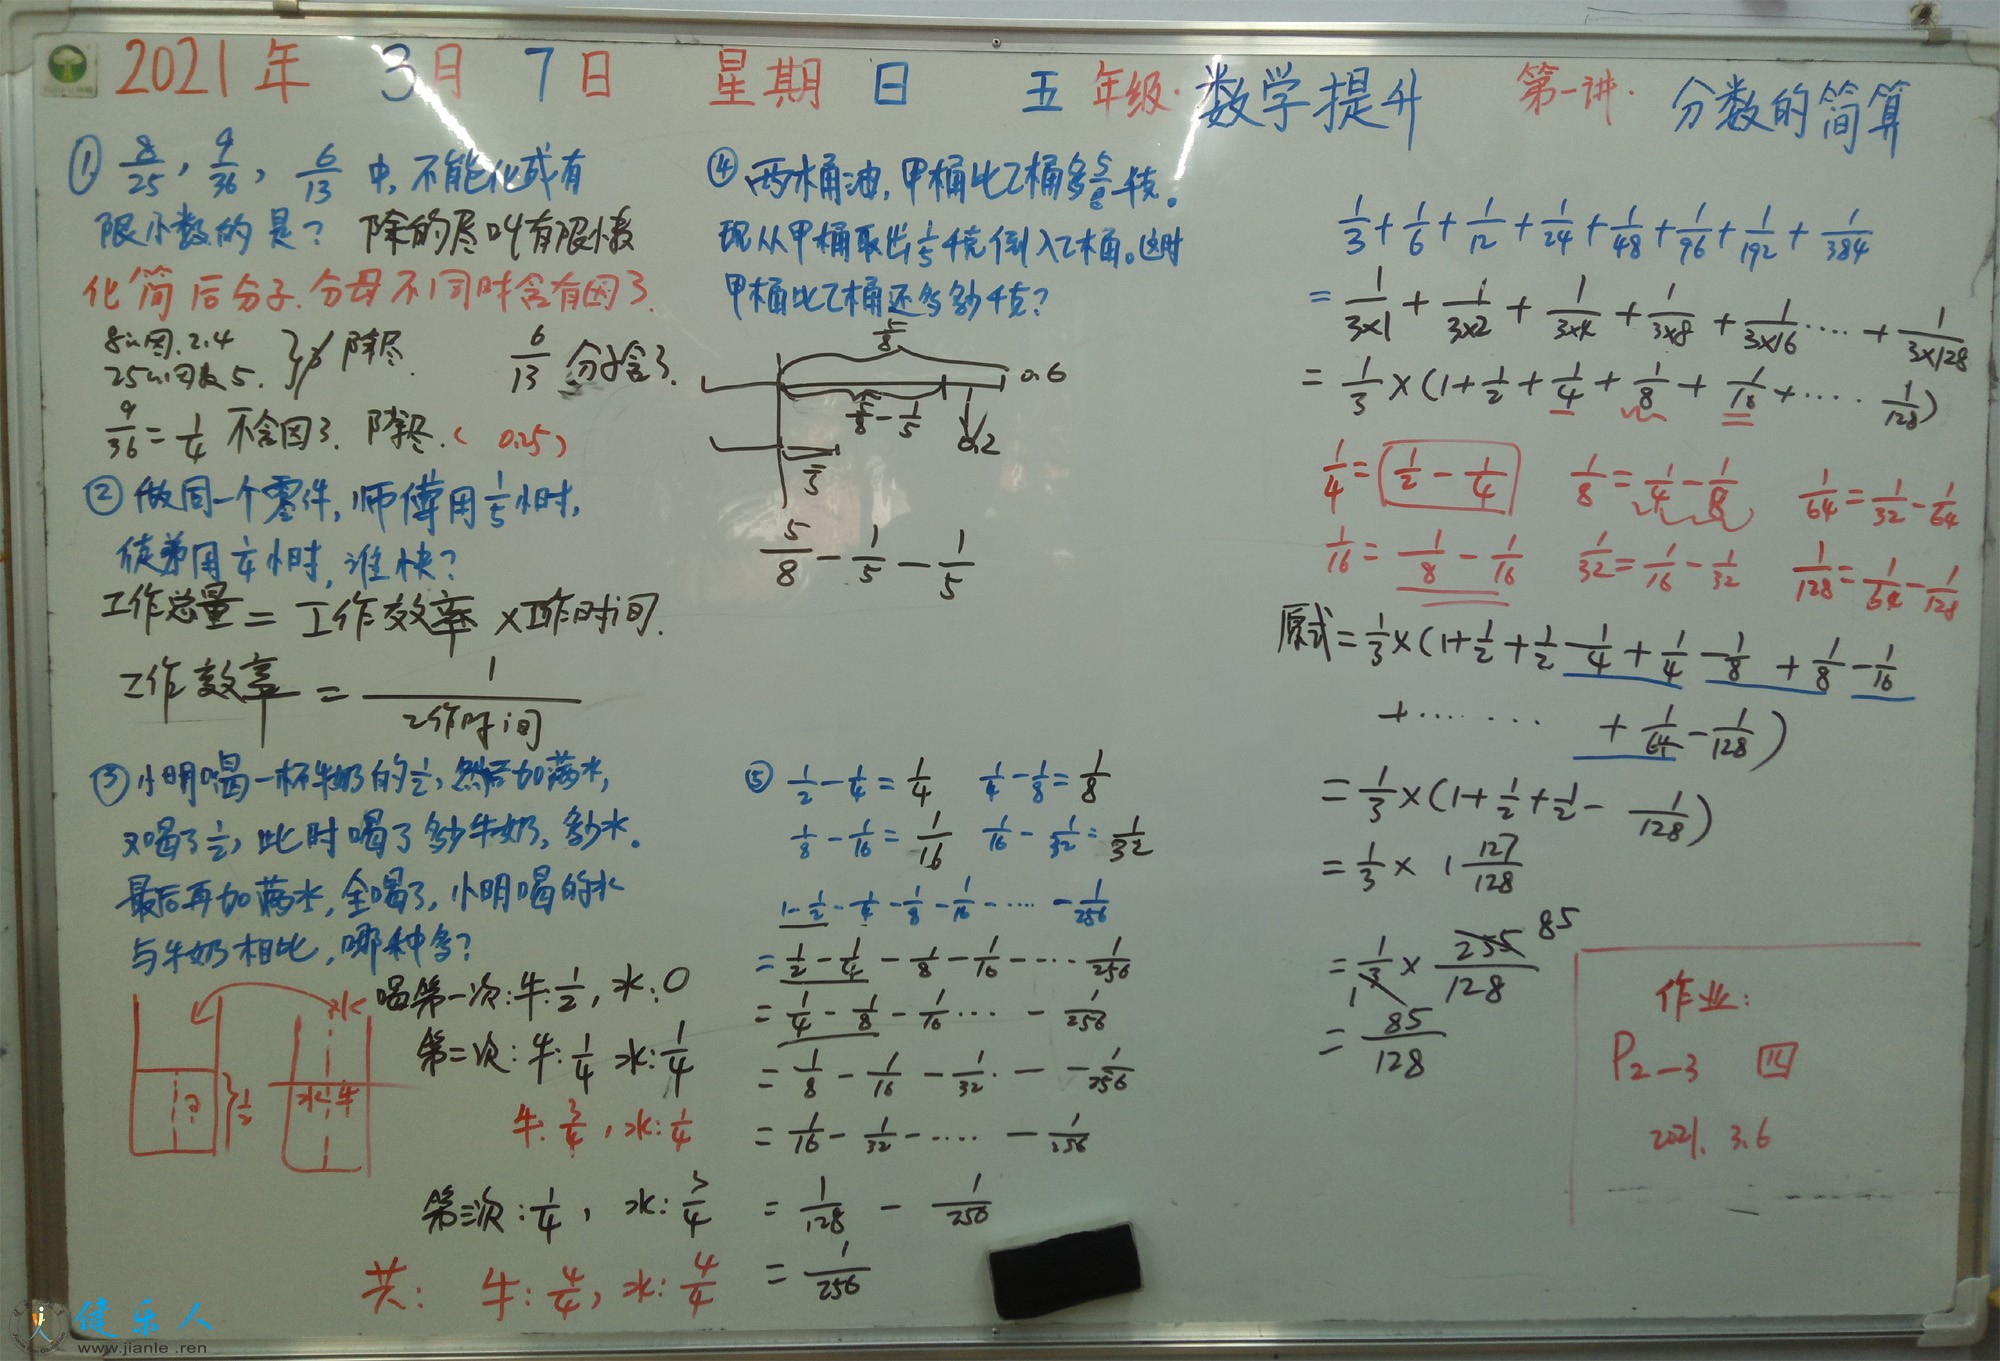 2021年 3月 7日 星期日 五年级·数学提升 第一讲· 分数的简算
① 8/25, 9/36, 6/13 中,不能化成有
限小数的是? 除的尽叫有限小数
化简后分子.分母不同时含有因3.
25的因数5. 除尽. 6/13 分子含3.
9/36=1/4 不含因3. 除尽.( 0.25)
② 做同一个零件,师傅用1/5小时,
徒弟用1/4小时,谁快?
工作总量=工作效率×工作时间.
工作效率=1/工作时间
③ 小明喝一杯牛奶的1/2,然后加满水,
又喝了1/2,此时喝了多少牛奶,多少水。
最后再加满水,全喝了,小明喝的水
与牛奶相比,哪种多?
水
1/2
水 牛
喝第一次:牛:1/2,水:0
第二次:牛:1/4 水:1/4
牛:3/4,水:1/4
第三次:1/4, 水:3/4
共: 牛:4/4,水:4/4
④ 两桶油,甲桶比乙桶多5/8千克。
现从甲桶取出1/5千克倒入乙桶。这时
甲桶比乙桶还多多少千克?
5/8
0.6
5/8-1/5
0.2
5/8-1/5-1/5
⑤ 1/2-1/4=1/4 1/4-1/8=1/8
1/8-1/16=1/16 1/16-1/32=1/32
1-1/2-1/4-1/8-1/16-····-1/256
=1/2-1/4-1/8-1/16-····1/256
=1/4-1/8-1/16··· -1/256
=1/8-1/16-1/32·- -1/256
=1/16-1/32-····-1/256
=1/128-1/256
=1/256
1/3+1/6+1/12+1/24+1/48+1/96+1/192+1/384
=1/3×1+1/3×2+1/3×4+1/3×8+1/3×16····+1/3×128
=1/3×(1+1/2+1/4+1/8+1/16+····1/128)
1/4=1/2-1/4 1/8=1/4-1/8 1/64=1/32-1/64
1/16=1/8-1/16 1/32=1/16-1/32 1/128=1/64-1/128
原式=1/3×(1+1/2+1/2-1/4+1/4-1/8+1/8-1/16
+········+1/64-1/128)
=1/3×(1+1/2+1/2-1/128)
=1/3×1 127/128
=1/3×255/128 85
1
=85/128
作业:
P2-3 四
2021.3.6
健乐人
www.jianle.ren